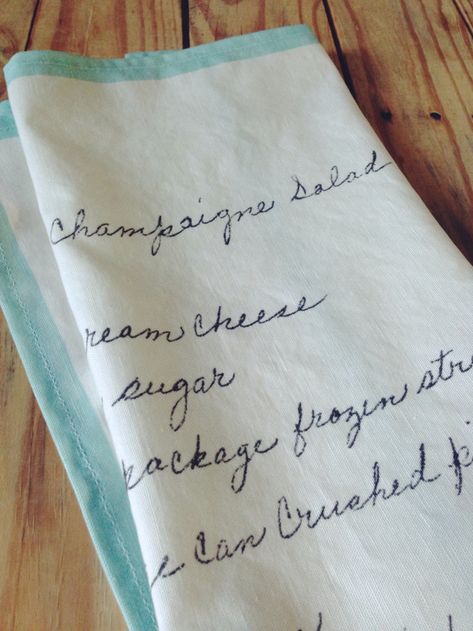 Champaigne Salad
ream cheese
sugar
package frozen str
can crushed pi